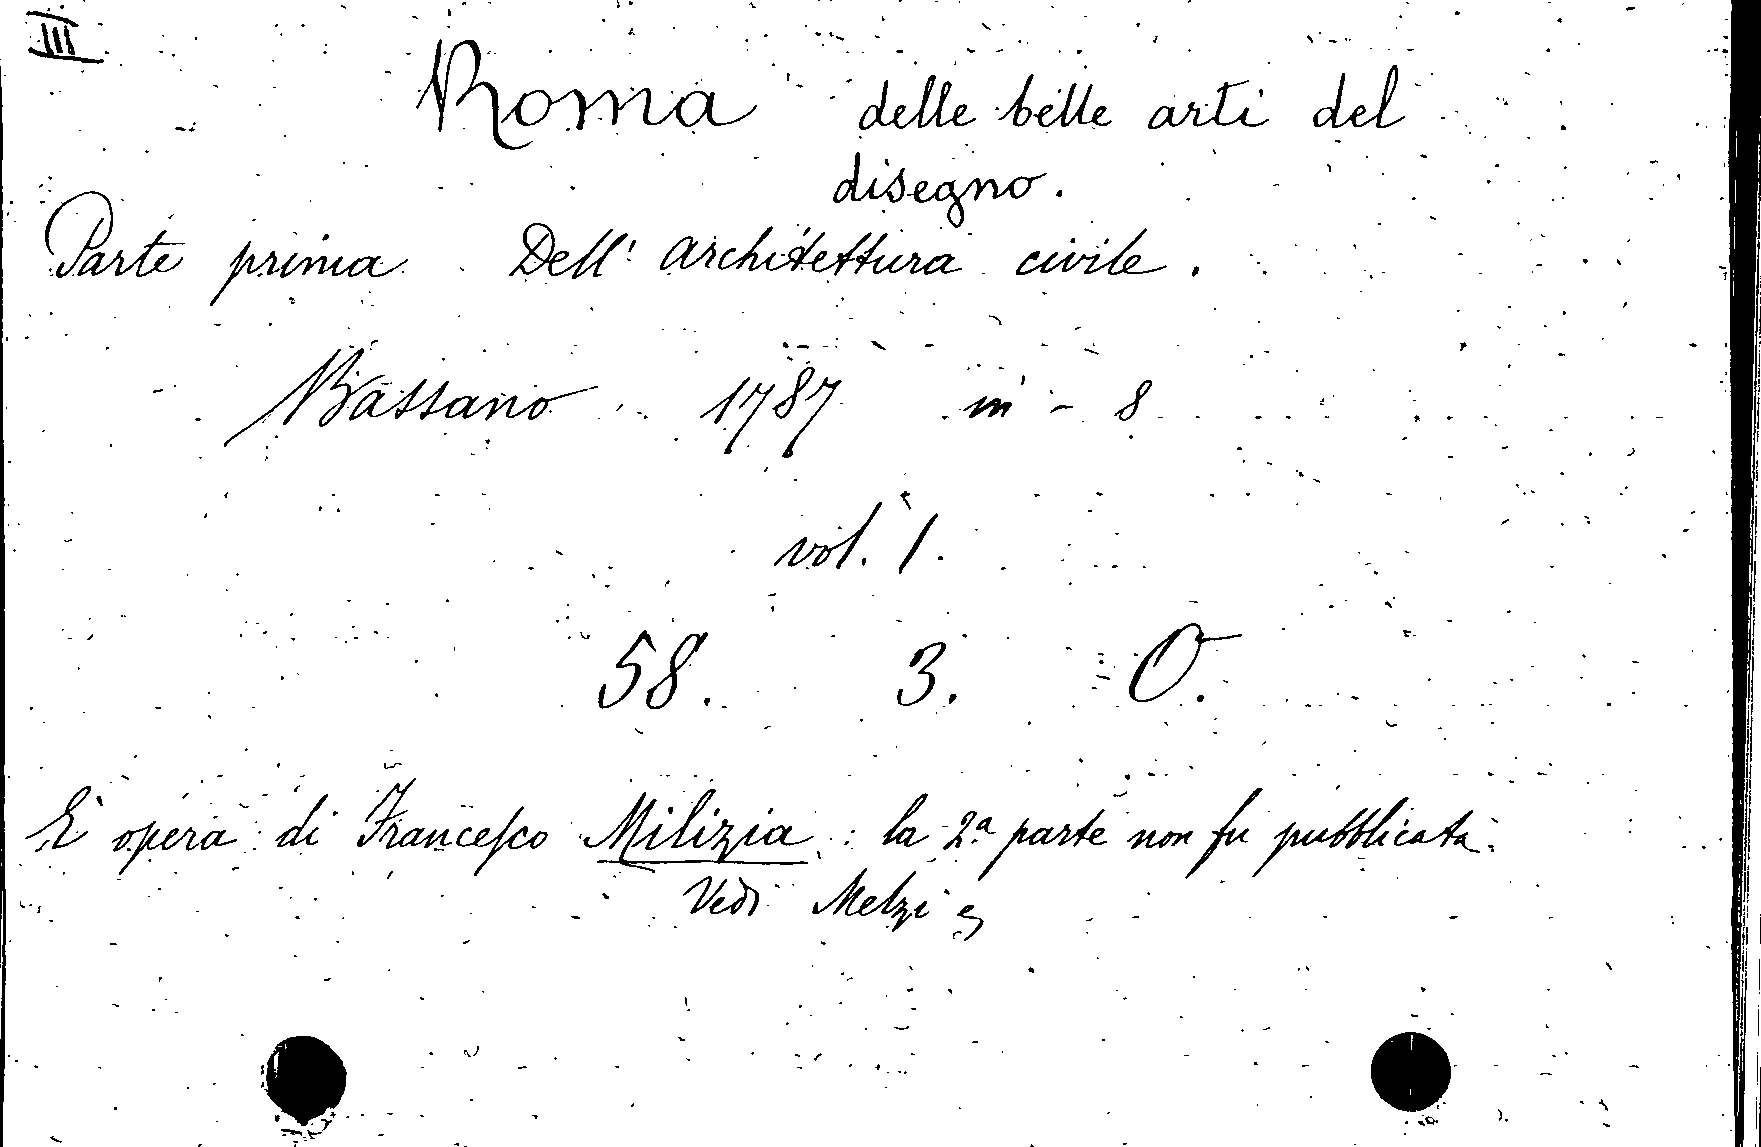 III
Roma delle belle arti del
disegno.
Parte prima Dell' architettura civile.
Bassano 1787 in - 8
vol. 1.
58. 3. O.
È opera di Francesco Milizia : la 2a parte non fu pubblicata.
Vedi Melzi